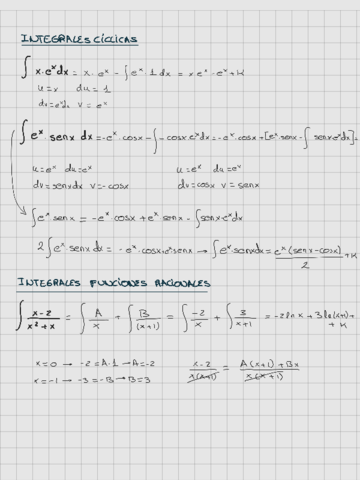 INTEGRALES CÍCLICAS
∫ x·eˣdx = x·eˣ - ∫eˣ 1 dx = xeˣ - eˣ + K
u=x du=1
dv=eˣdx v=eˣ
∫ eˣ senx dx = -eˣ·cosx - ∫-cosx eˣdx = -eˣ·cosx + [eˣ·senx - ∫senxeˣdx] =
u=eˣ du=eˣ u=eˣ du=eˣ
dv=senxdx v=-cosx dv=cosx v=senx
∫eˣ senx = -eˣ cosx + eˣ senx - ∫senx·eˣdx
2∫eˣ senxdx = -eˣ·cosx+eˣsenx → ∫eˣ·senxdx = eˣ(senx-cosx)/2 + K
INTEGRALES FUNCIONES RACIONALES
∫ (x-2)/(x²+x) = ∫ A/x + ∫ B/(x+1) = ∫ -2/x + ∫ 3/(x+1) = -2lnx + 3ln(x+1) +
+ K
x=0 → -2=A·1 → A=-2 (x-2)/(x(x+1)) = (A(x+1)+Bx)/(x(x+1))
x=-1 → -3=-B → B=3